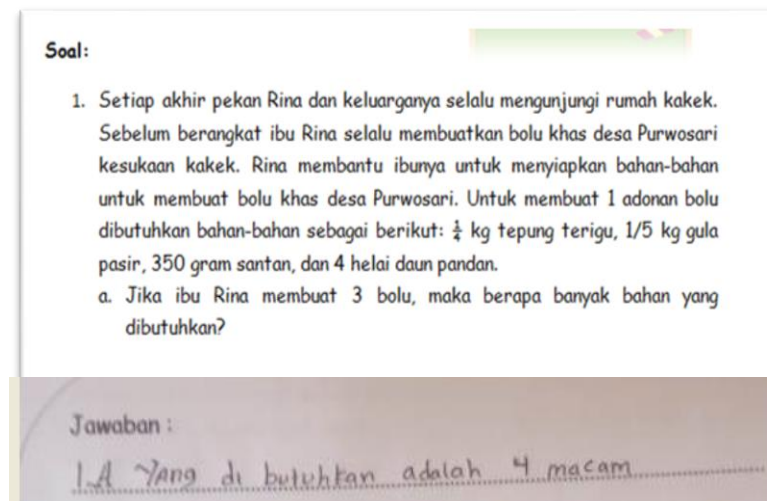 Soal:
1. Setiap akhir pekan Rina dan keluarganya selalu mengunjungi rumah kakek.
Sebelum berangkat ibu Rina selalu membuatkan bolu khas desa Purwosari
kesukaan kakek. Rina membantu ibunya untuk menyiapkan bahan-bahan
untuk membuat bolu khas desa Purwosari. Untuk membuat 1 adonan bolu
dibutuhkan bahan-bahan sebagai berikut: ¼ kg tepung terigu, 1/5 kg gula
pasir, 350 gram santan, dan 4 helai daun pandan.
a. Jika ibu Rina membuat 3 bolu, maka berapa banyak bahan yang
dibutuhkan?
Jawaban :
1.A Yang di butuhkan adalah 4 macam